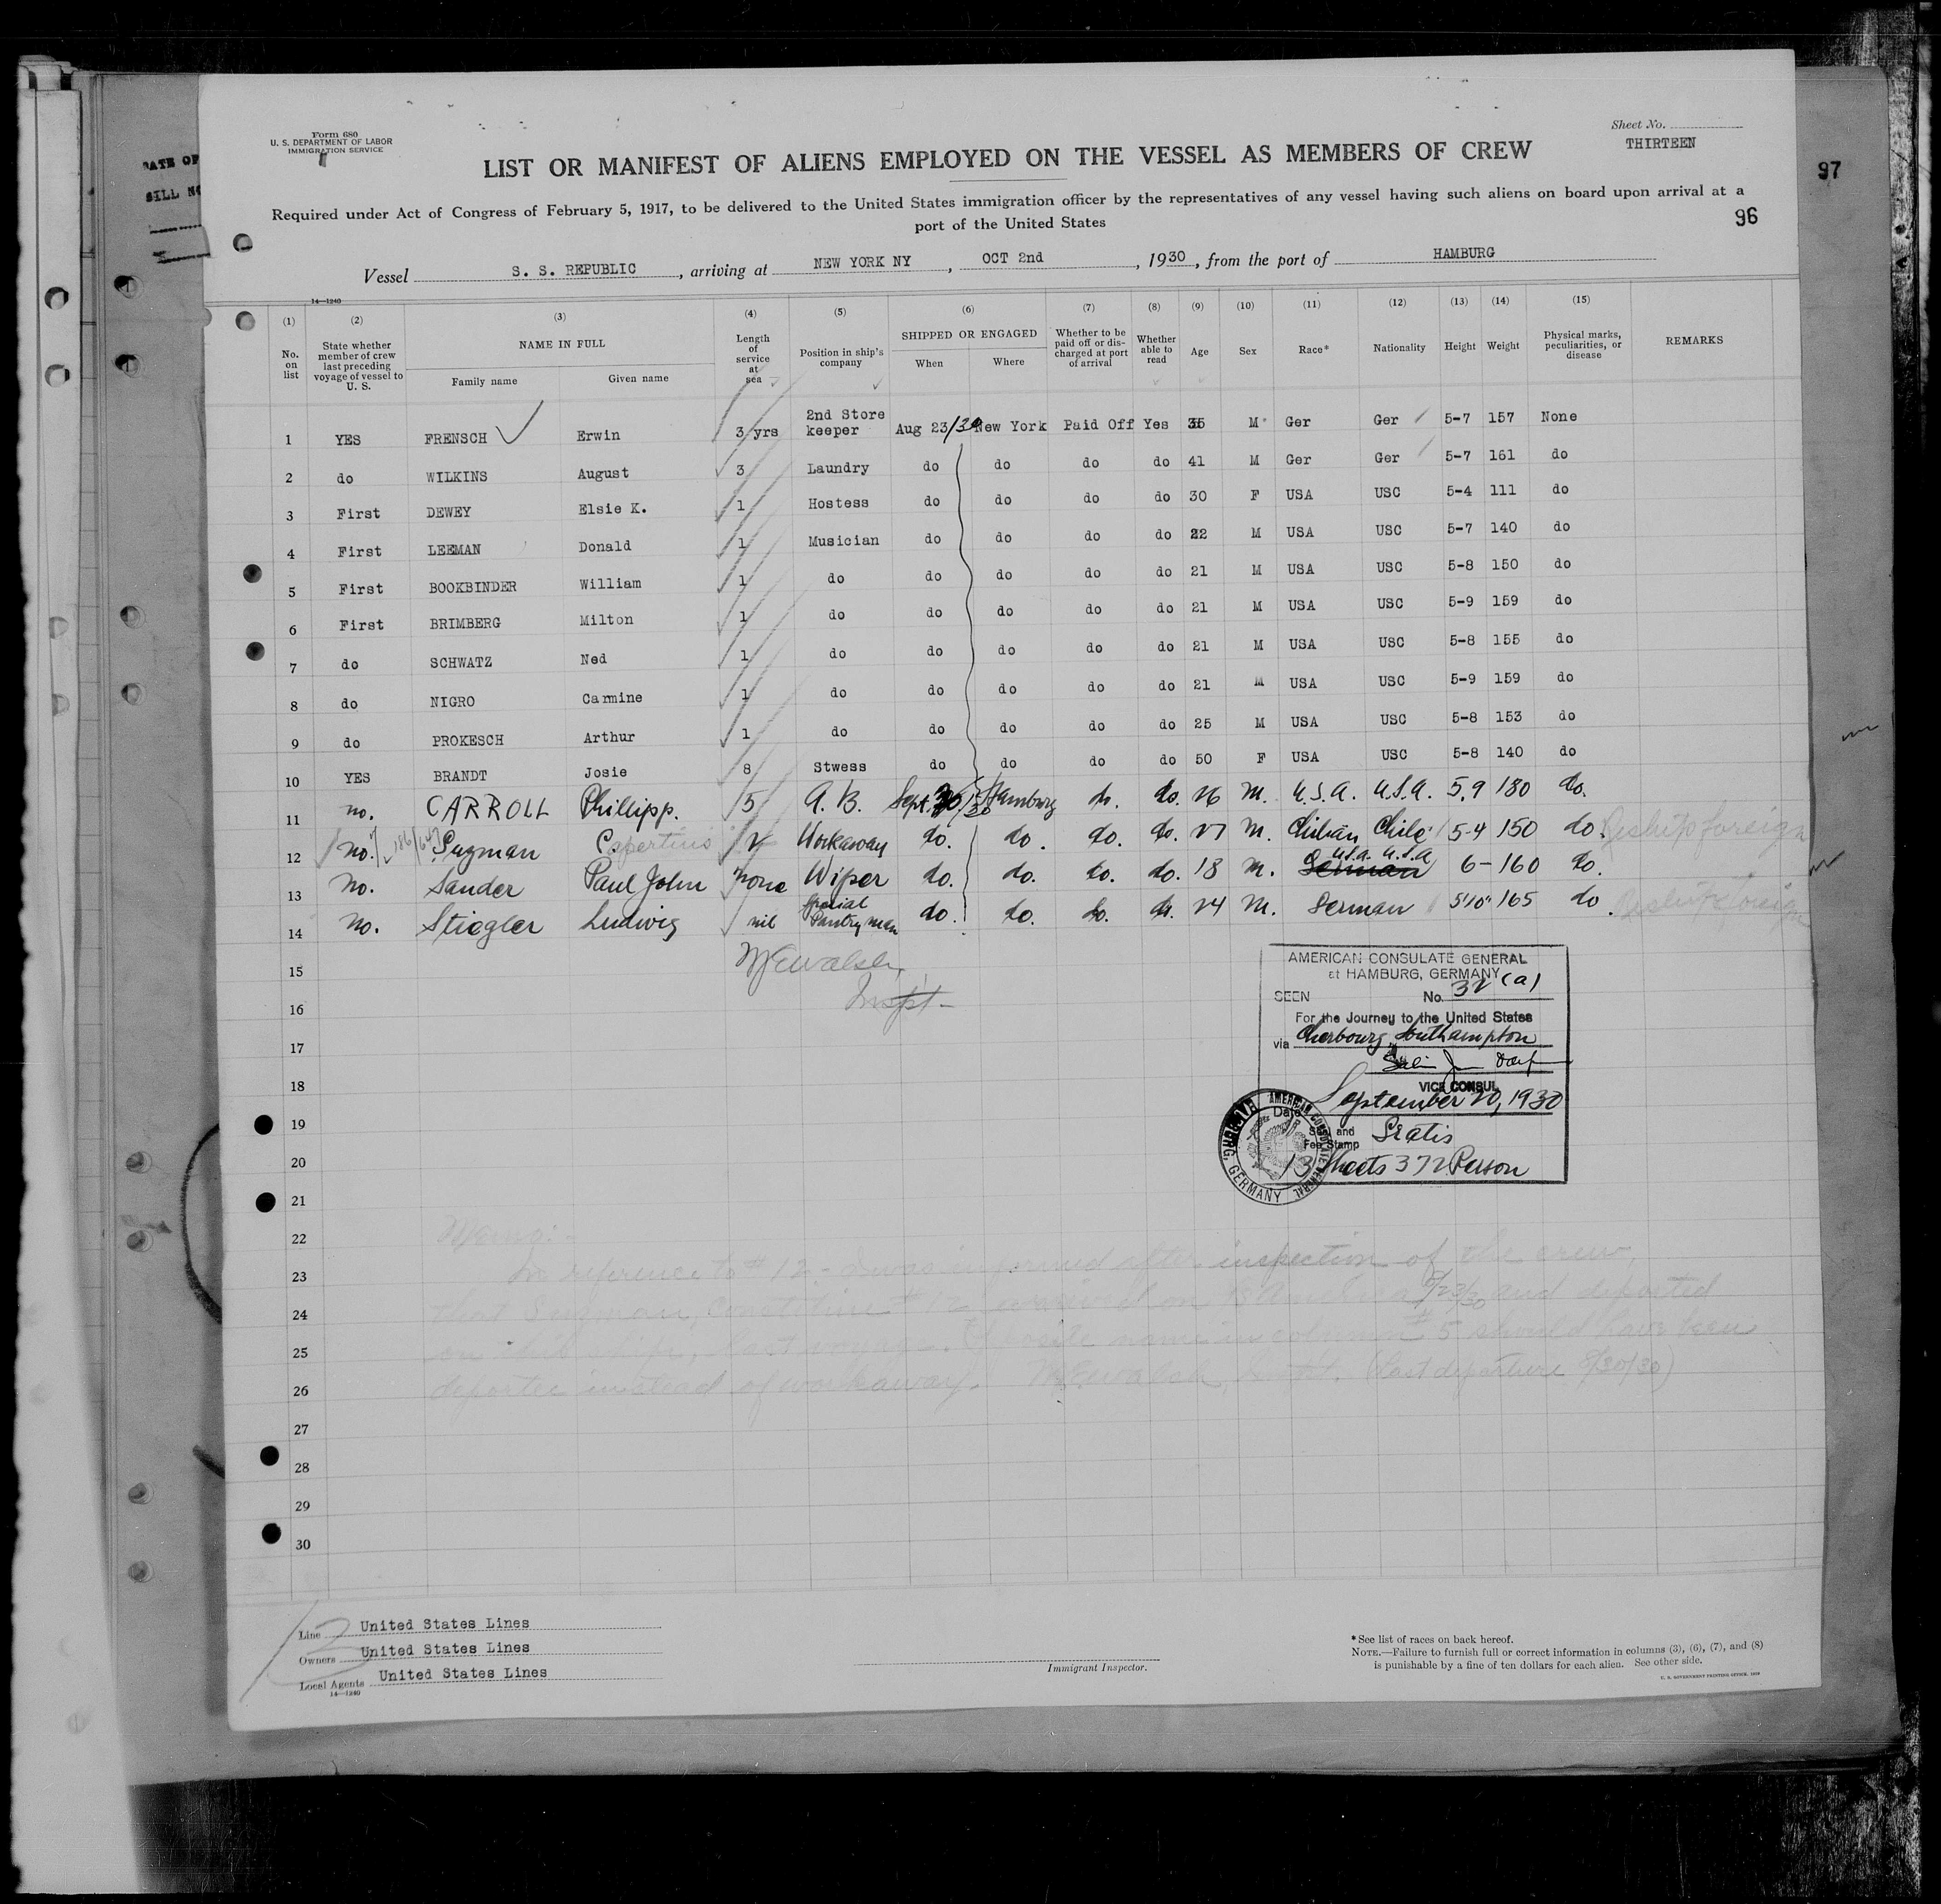 Form 680
U. S. DEPARTMENT OF LABOR
IMMIGRATION SERVICE
Sheet No.
THIRTEEN
DATE OF
97
LIST OR MANIFEST OF ALIENS EMPLOYED ON THE VESSEL AS MEMBERS OF CREW
Required under Act of Congress of February 5, 1917, to be delivered to the United States immigration officer by the representatives of any vessel having such aliens on board upon arrival at a
port of the United States
96
Vessel S. S. REPUBLIC, arriving at NEW YORK NY, OCT 2nd, 1930, from the port of HAMBURG
14—1240
(1) (2) (3) (4) (5) (6) (7) (8) (9) (10) (11) (12) (13) (14) (15)
No. on list
State whether member of crew last preceding voyage of vessel to U. S.
NAME IN FULL
Family name
Given name
Length of service at sea
Position in ship's company
SHIPPED OR ENGAGED
When
Where
Whether to be paid off or discharged at port of arrival
Whether able to read
Age
Sex
Race*
Nationality
Height
Weight
Physical marks, peculiarities, or disease
REMARKS
1 YES FRENSCH Erwin 3 yrs 2nd Store keeper Aug 23/30 New York Paid Off Yes 35 M Ger Ger 5-7 157 None
2 do WILKINS August 3 Laundry do do do do 41 M Ger Ger 5-7 161 do
3 First DEWEY Elsie K. 1 Hostess do do do do 30 F USA USC 5-4 111 do
4 First LEEMAN Donald 1 Musician do do do do 22 M USA USC 5-7 140 do
5 First BOOKBINDER William 1 do do do do do 21 M USA USC 5-8 150 do
6 First BRIMBERG Milton 1 do do do do do 21 M USA USC 5-9 159 do
7 do SCHWATZ Ned 1 do do do do do 21 M USA USC 5-8 155 do
8 do NIGRO Carmine 1 do do do do do 21 M USA USC 5-9 159 do
9 do PROKESCH Arthur 1 do do do do do 25 M USA USC 5-8 153 do
10 YES BRANDT Josie 8 Stwess do do do do 50 F USA USC 5-8 140 do
11 no. CARROLL Phillipp. 5 A. B. Sept. Hamburg do. do. 26 M. U.S.A. U.S.A. 5,9 180 do.
12 no. Workaway do. do. do. do. 27 M. Chilian Chile 5-4 150 do. Reship foreign
13 no. Sander Paul John none Wiper do. do. do. do. 18 M. German U.S.A. U.S.A 6- 160 do.
14 no. Stiegler Ludwig nil Special Pantryman do. do. do. do. 24 M. German 5'10" 165 do. Reship foreign
15
16 Inspt-
17
18
19
20
21
22
23
24
25
26
27
28
29
30
AMERICAN CONSULATE GENERAL
at HAMBURG, GERMANY
SEEN No. 32 (a)
For the Journey to the United States
via Cherbourg, Southampton
VICE CONSUL
Date September 20, 1930
Seal and Fee Stamp Gratis
13 Sheets 372 Person
AMERICAN CONSULATE GENERAL
HAMBURG, GERMANY
Memo:-
In reference to #12 - I was informed after inspection of the crew,
that #12 arrived on America and deported
on this ship, last voyage. name in column #5 should have been
deportee instead of workaway. Inspt. (last departure 8/30/30)
13
Line United States Lines
Owners United States Lines
Local Agents United States Lines
14—1240
Immigrant Inspector.
*See list of races on back hereof.
NOTE.—Failure to furnish full or correct information in columns (3), (6), (7), and (8)
is punishable by a fine of ten dollars for each alien. See other side.